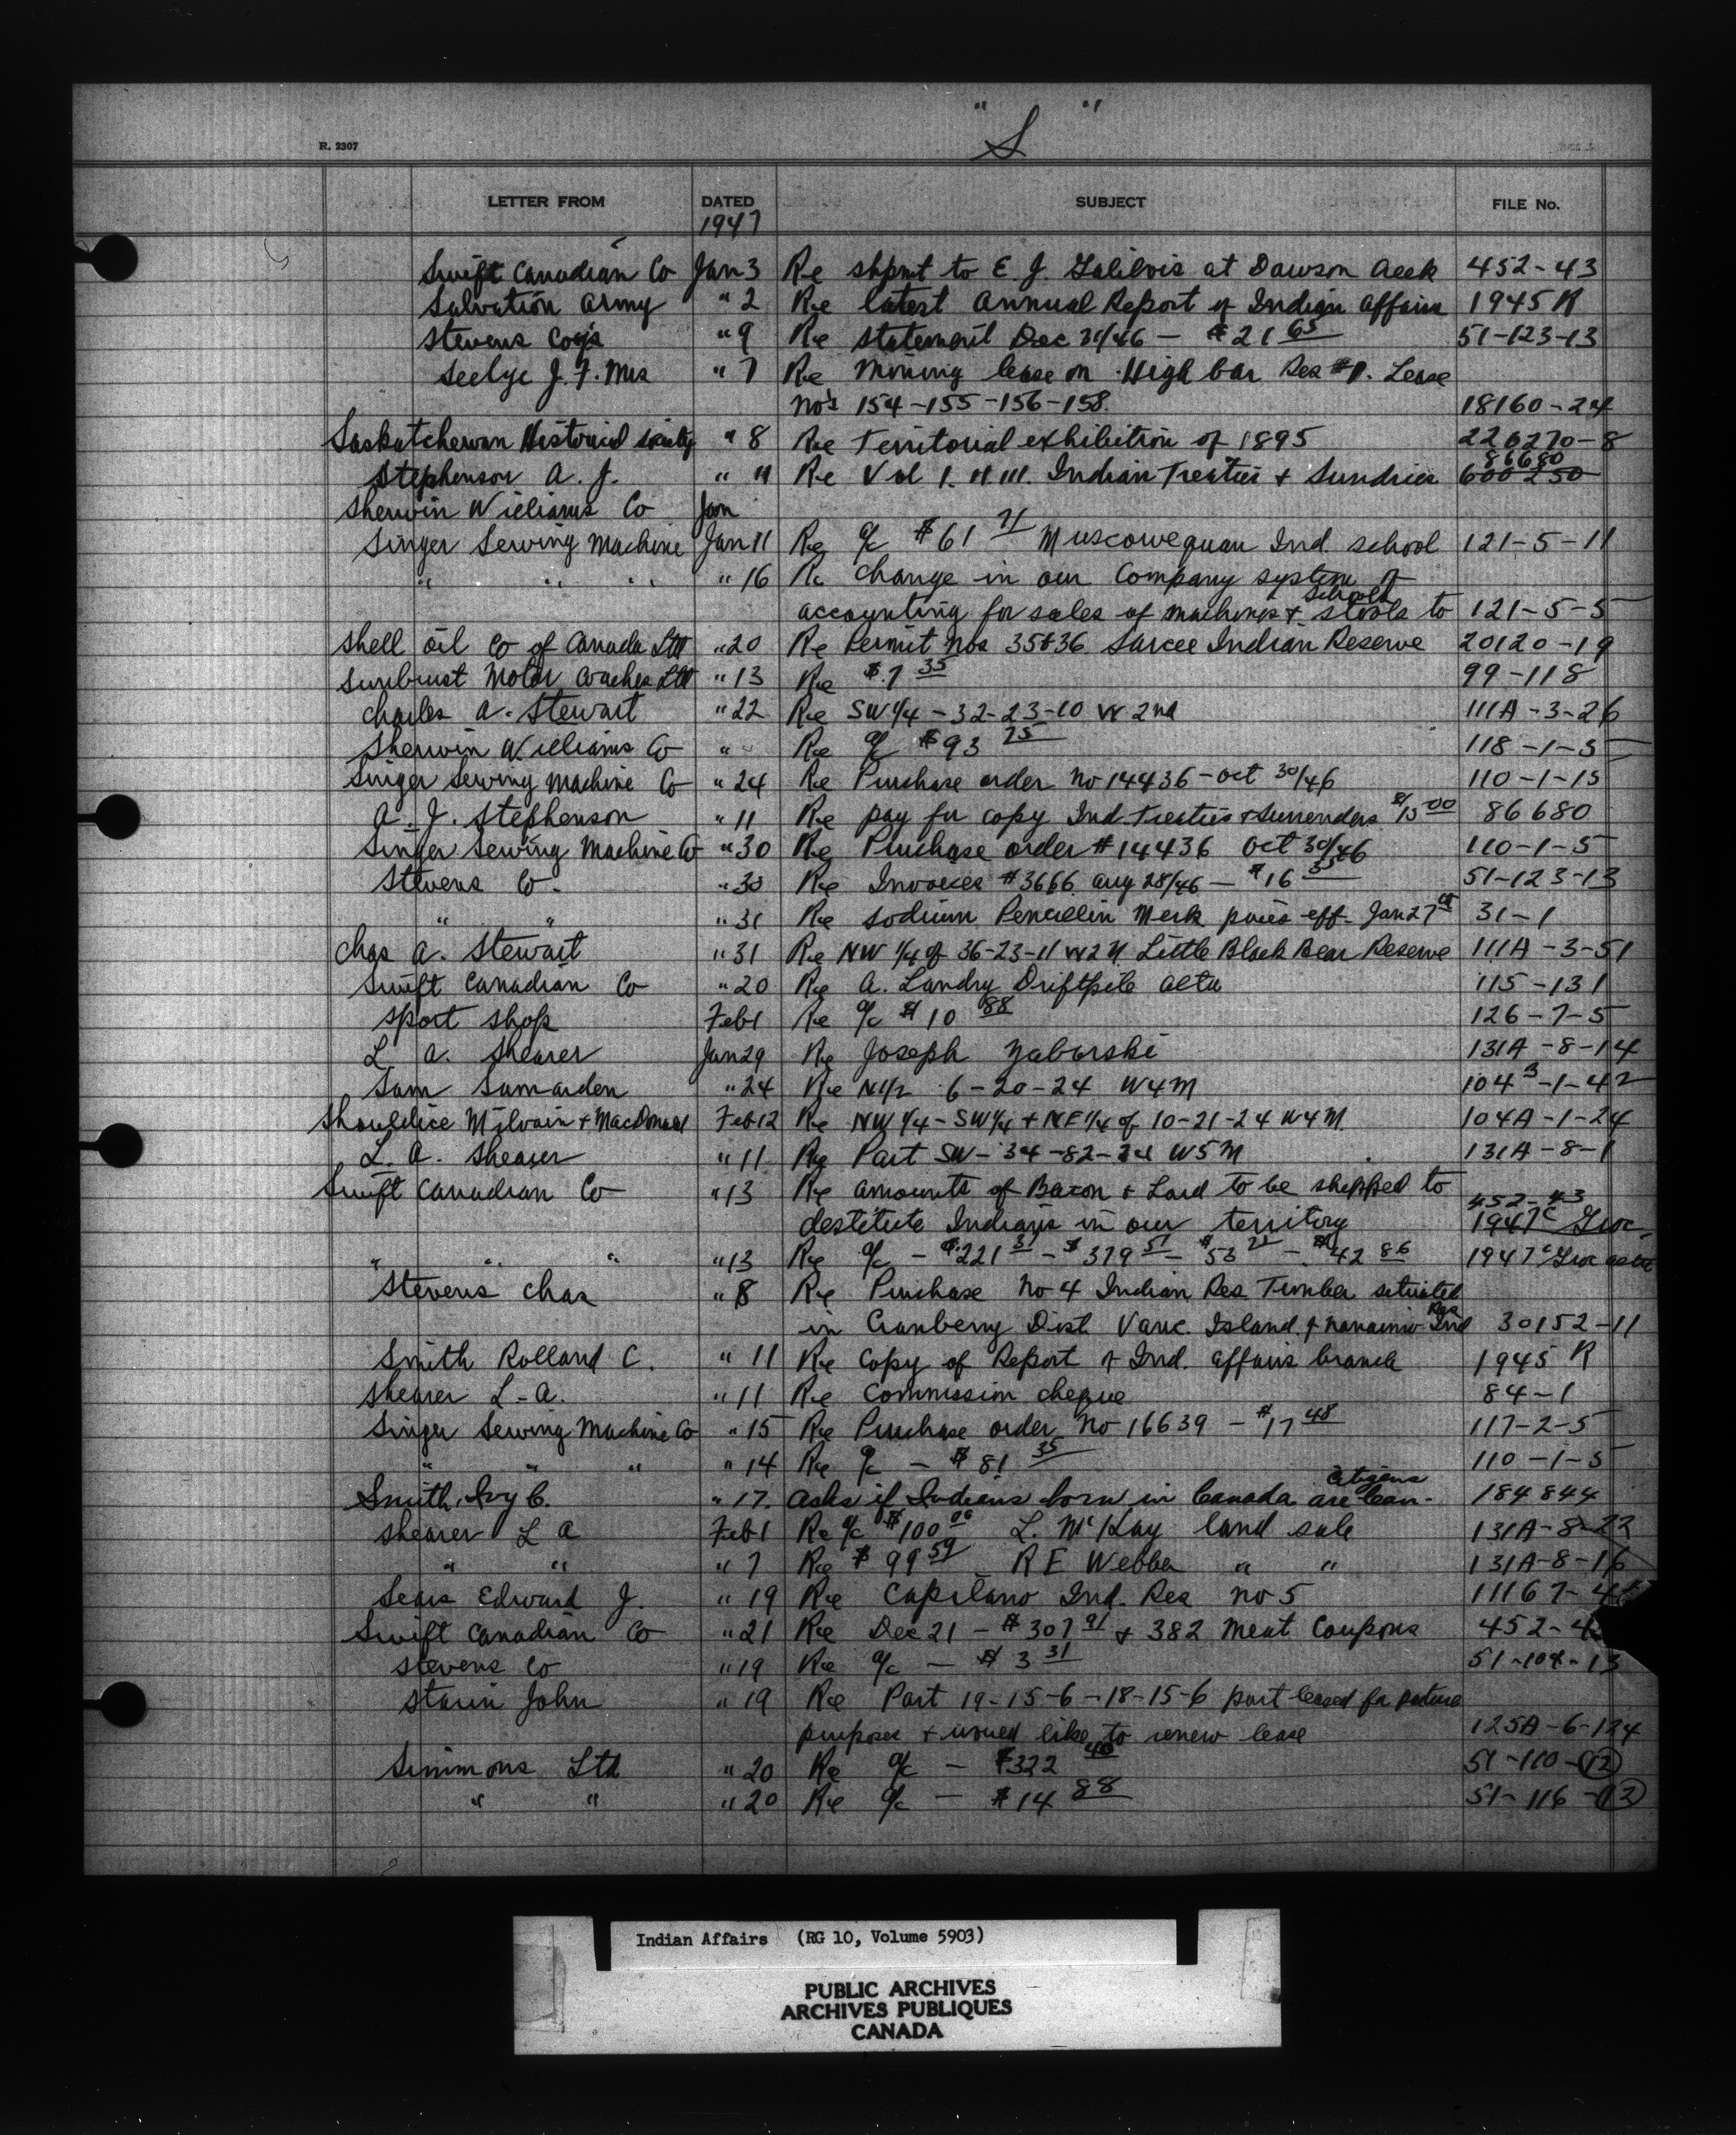 "S"
R. 2307
LETTER FROM DATED SUBJECT FILE No.
1947
Swift Canadian Co Jan 3 Re shpmt to E J. at Dawson Creek 452-43
Salvation Army " 2 Re latest Annual Report of Indian Affairs 1945 R
Stevens Coys " 9 Re statement Dec 31/46 - $21 65 51-123-13
Seelye J. F. Mrs " 7 Re Mining lease on High bar Res #1. Lease
No's 154-155-156-158. 18160-24
Saskatchewan Historical Society " 8 Re Territorial exhibition of 1895 226270-8
86680
Stephenson A. J. " 11 Re Vol I. II III. Indian Treaties & Sundries 600250
Sherwin Williams Co Jan
Singer Sewing Machine Jan 11 Re a/c $61 21 Muscowequan Ind. School 121-5-11
" " " " 16 Re change in our Company system of
accounting for sales of machines & stools to Schools 121-5-5
Shell Oil Co of Canada Ltd " 20 Re Permit Nos 35&36 Sarcee Indian Reserve 20120-19
Sunburst Motor Coaches Ltd " 13 Re $7 35 99-118
Charles A. Stewart " 22 Re SW 1/4 - 32-23-10 W 2nd 111A-3-26
Sherwin Williams Co " Re a/c $93 75 118-1-5
Singer Sewing Machine Co " 24 Re Purchase order No 14436 - Oct 30/46 110-1-15
A. J. Stephenson " 11 Re pay for copy Ind. Treaties & Surrenders $15 00 86680
Singer Sewing Machine Co " 30 Re Purchase order # 14436 Oct 30/46 110-1-5
Stevens Co. " 30 Re Invoices #3666 Aug 28/46 - $16 35 51-123-13
" " " 31 Re Sodium Penicillin Merk prices eff. Jan 27 31-1
Chas A. Stewart " 31 Re NW 1/4 of 36-23-11 W2M Little Black Bear Reserve 111A-3-51
Swift Canadian Co " 20 Re A. Landry Driftpile Alta 115-131
Sport Shop Feb 1 Re a/c $10 88 126-7-5
L. A. Shearer Jan 29 Re Joseph Zaborski 131A-8-14
Sam Samarden " 24 Re N1/2 6-20-24 W4M 104 B-1-42
Shouldice Milvain & MacDonald Feb 12 Re NW 1/4 - SW 1/4 & NE 1/4 of 10-21-24 W4M. 104A-1-24
L. A. Shearer " 11 Re Part SW- 34-82-24 W5M 131A-8-1
Swift Canadian Co " 13 Re amounts of Bacon & Lard to be shipped to 452-43
destitute Indians in our territory 1947C Groc.
" " " " 13 Re a/c - $221 31 - $379 51 - $53 21 - $42 86 1947C Groc
Stevens Chas " 8 Re Purchase No 4 Indian Res Timber situated
in Cranberry Dist. Vanc. Island & Nanaimo Ind Res 30152-11
Smith Rolland C. " 11 Re Copy of Report of Ind. Affairs branch 1945 R
Shearer L-A. " 11 Re Commission cheque 84-1
Singer Sewing Machine Co " 15 Re Purchase order No 16639 - $17 48 117-2-5
" " " " 14 Re a/c - $81 35 110-1-5
Smith, Ivy C. " 17. Asks if Indians born in Canada are Can- citizens 184844
Shearer L A Feb 1 Re a/c $100 00 L. McKay land sale 131A-8-22
" " " 7 Re $99 59 R E Webber " " 131A-8-16
Sears Edward J. " 19 Re Capilano Ind. Res no 5 11167-4
Swift Canadian Co " 21 Re Dec 21 - $307 91 & 382 Meat Coupons 452-4
Stevens Co " 19 Re a/c - $3 31 51-104-13
Starin John " 19 Re Part 19-15-6 - 18-15-6 part leased for pasture
purposes & would like to renew lease 125A-6-124
Simmons Ltd " 20 Re a/c - $322 40 51-110-12
" " " 20 Re a/c - $14 88 51-116-13
Indian Affairs (RG 10, Volume 5903)
PUBLIC ARCHIVES
ARCHIVES PUBLIQUES
CANADA